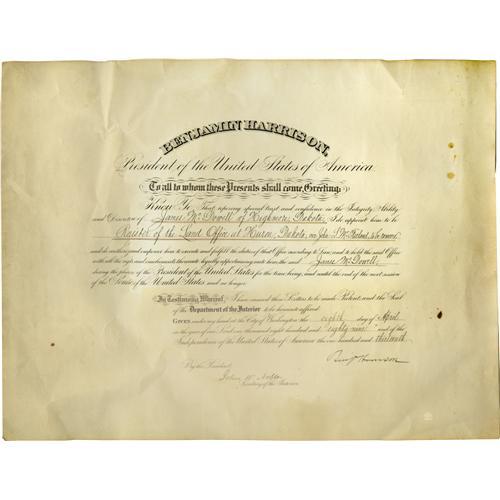 BENJAMIN HARRISON,
President of the United States of America.
To all to whom these Presents shall come, Greeting:
Know Ye That reposing special trust and confidence in the Integrity, Ability
and Discretion of James McDowell of Highmore, Dakota, I do appoint him to be
Register of the Land Office at Huron, Dakota, vice John S. to be removed
and do authorize and empower him to execute and fulfil the duties of that Office according to Law; and to hold the said Office
with all the rights and emoluments thereunto legally appertaining unto him the said James McDowell,
during the pleasure of the President of the United States for the time being, and until the end of the next session
of the Senate of the United States and no longer.
In Testimony Whereof, I have caused these Letters to be made Patent, and the Seal
of the Department of the Interior to be hereunto affixed.
Given under my hand at the City of Washington the eighth day of April
in the year of our Lord one thousand eight hundred and eighty nine and of the
Independence of the United States of America the one hundred and thirteenth.
Benj Harrison
By the President:
John W. Noble
Secretary of the Interior.